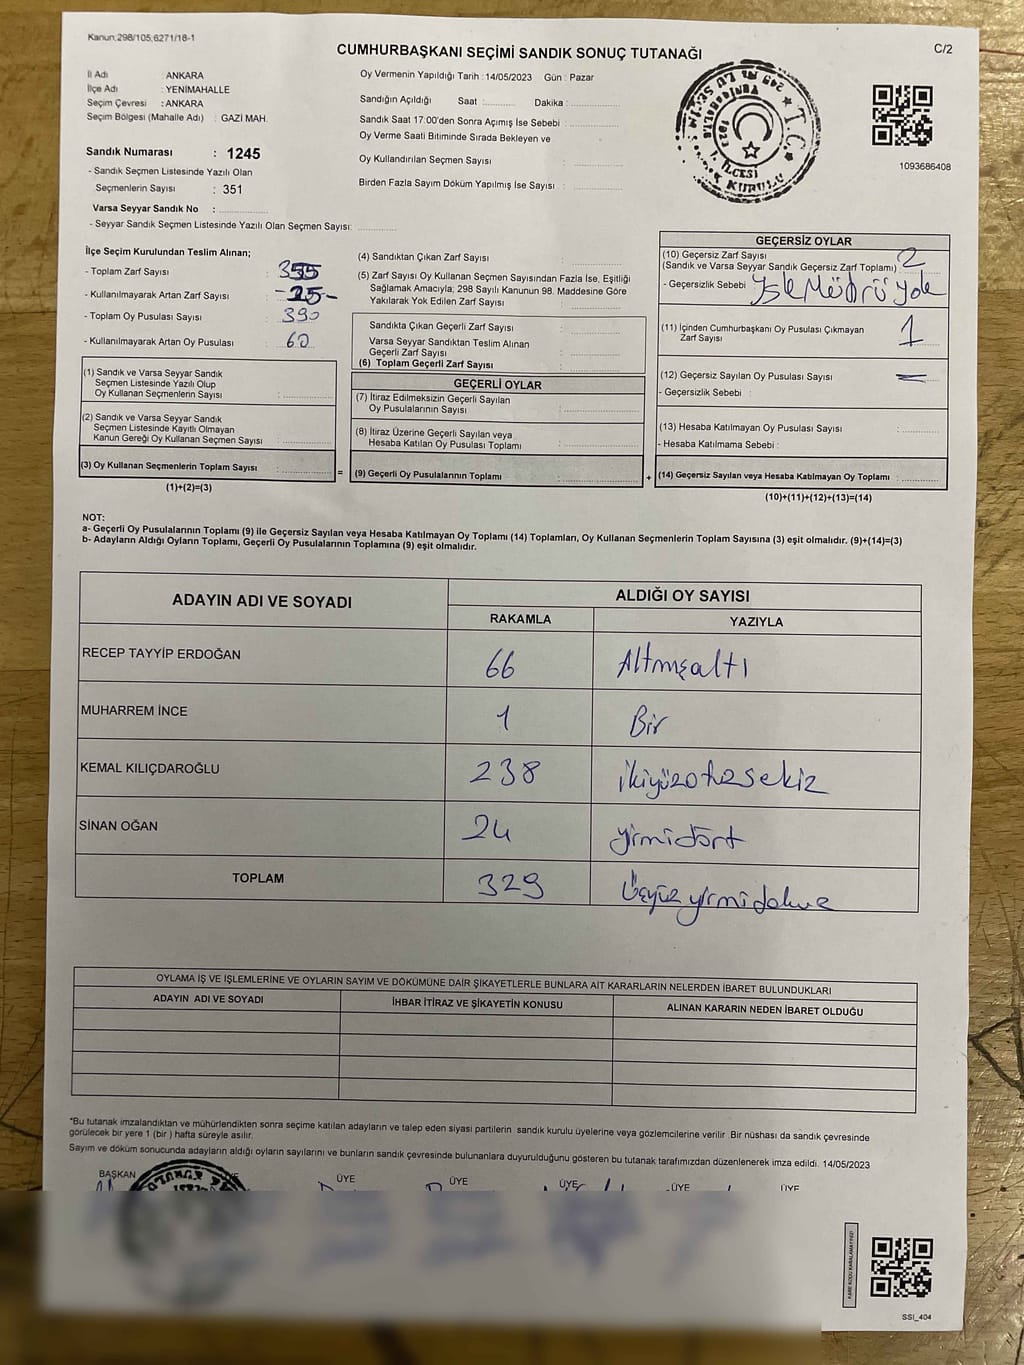 Kanun;298/105;6271/18-1
CUMHURBAŞKANI SEÇİMİ SANDIK SONUÇ TUTANAĞI
C/2
İl Adı : ANKARA
İlçe Adı : YENİMAHALLE
Seçim Çevresi : ANKARA
Seçim Bölgesi (Mahalle Adı) : GAZİ MAH.
Sandık Numarası : 1245
- Sandık Seçmen Listesinde Yazılı Olan
Seçmenlerin Sayısı : 351
Varsa Seyyar Sandık No :
- Seyyar Sandık Seçmen Listesinde Yazılı Olan Seçmen Sayısı:
Oy Vermenin Yapıldığı Tarih :14/05/2023 Gün : Pazar
Sandığın Açıldığı Saat : Dakika :
Sandık Saat 17:00'den Sonra Açımış İse Sebebi :
Oy Verme Saati Bitiminde Sırada Bekleyen ve
Oy Kullandırılan Seçmen Sayısı :
Birden Fazla Sayım Döküm Yapılmış İse Sayısı :
T.C.
İLÇESİ
KURULU
1093686408
İlçe Seçim Kurulundan Teslim Alınan;
- Toplam Zarf Sayısı : 355
- Kullanılmayarak Artan Zarf Sayısı : -25-
- Toplam Oy Pusulası Sayısı : 390
- Kullanılmayarak Artan Oy Pusulası : 60
(1) Sandık ve Varsa Seyyar Sandık
Seçmen Listesinde Yazılı Olup
Oy Kullanan Seçmenlerin Sayısı :
(2) Sandık ve Varsa Seyyar Sandık
Seçmen Listesinde Kayıtlı Olmayan
Kanun Gereği Oy Kullanan Seçmen Sayısı :
(3) Oy Kullanan Seçmenlerin Toplam Sayısı :
(1)+(2)=(3)
=
(4) Sandıktan Çıkan Zarf Sayısı :
(5) Zarf Sayısı Oy Kullanan Seçmen Sayısından Fazla İse, Eşitliği
Sağlamak Amacıyla; 298 Sayılı Kanunun 98. Maddesine Göre
Yakılarak Yok Edilen Zarf Sayısı :
Sandıkta Çıkan Geçerli Zarf Sayısı :
Varsa Seyyar Sandıktan Teslim Alınan
Geçerli Zarf Sayısı :
(6) Toplam Geçerli Zarf Sayısı :
GEÇERLİ OYLAR
(7) İtiraz Edilmeksizin Geçerli Sayılan
Oy Pusulalarının Sayısı :
(8) İtiraz Üzerine Geçerli Sayılan veya
Hesaba Katılan Oy Pusulası Toplamı :
(9) Geçerli Oy Pusulalarının Toplamı :
+
GEÇERSİZ OYLAR
(10) Geçersiz Zarf Sayısı 2
(Sandık ve Varsa Seyyar Sandık Geçersiz Zarf Toplamı) :
- Geçersizlik Sebebi : Mührü Yok
(11) İçinden Cumhurbaşkanı Oy Pusulası Çıkmayan 1
Zarf Sayısı :
(12) Geçersiz Sayılan Oy Pusulası Sayısı : =
- Geçersizlik Sebebi :
(13) Hesaba Katılmayan Oy Pusulası Sayısı :
- Hesaba Katılmama Sebebi :
(14) Geçersiz Sayılan veya Hesaba Katılmayan Oy Toplamı :
(10)+(11)+(12)+(13)=(14)
NOT:
a- Geçerli Oy Pusulalarının Toplamı (9) ile Geçersiz Sayılan veya Hesaba Katılmayan Oy Toplamı (14) Toplamları, Oy Kullanan Seçmenlerin Toplam Sayısına (3) eşit olmalıdır. (9)+(14)=(3)
b- Adayların Aldığı Oyların Toplamı, Geçerli Oy Pusulalarının Toplamına (9) eşit olmalıdır.
ADAYIN ADI VE SOYADI ALDIĞI OY SAYISI
RAKAMLA YAZIYLA
RECEP TAYYİP ERDOĞAN 66 Altmışaltı
MUHARREM İNCE 1 Bir
KEMAL KILIÇDAROĞLU 238 ikiyüzotuzsekiz
SİNAN OĞAN 24 yirmidört
TOPLAM 329 Üçyüzyirmidokuz
OYLAMA İŞ VE İŞLEMLERİNE VE OYLARIN SAYIM VE DÖKÜMÜNE DAİR ŞİKAYETLERLE BUNLARA AİT KARARLARIN NELERDEN İBARET BULUNDUKLARI
ADAYIN ADI VE SOYADI İHBAR İTİRAZ VE ŞİKAYETİN KONUSU ALINAN KARARIN NEDEN İBARET OLDUĞU
*Bu tutanak imzalandıktan ve mühürlendikten sonra seçime katılan adayların ve talep eden siyasi partilerin sandık kurulu üyelerine veya gözlemcilerine verilir Bir nüshası da sandık çevresinde
görülecek bir yere 1 (bir ) hafta süreyle asılır.
Sayım ve döküm sonucunda adayların aldığı oyların sayılarını ve bunların sandık çevresinde bulunanlara duyurulduğunu gösteren bu tutanak tarafımızdan düzenlenerek imza edildi. 14/05/2023
BAŞKAN ÜYE ÜYE ÜYE ÜYE ÜYE
KARE KODU KARALAMAYINIZ!
SSI_404